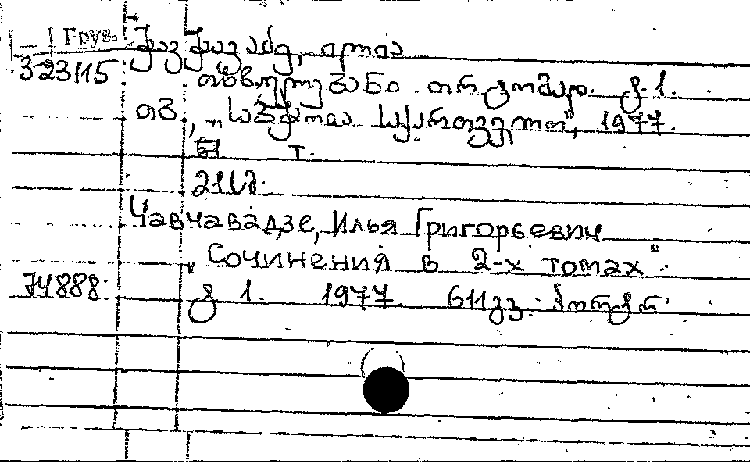 Груз. ჭავჭავაძე, ილია
323115
თხზულებანი ორ ტომად. ტ. 1.
თბ., „საბჭოთა საქართველო", 1977.
т.
211
Чавчавадзе, Илья Григорьевич
„Сочинения в 2-х томах"
74888 ტ 1. 1977. 611გვ. პორტრ.